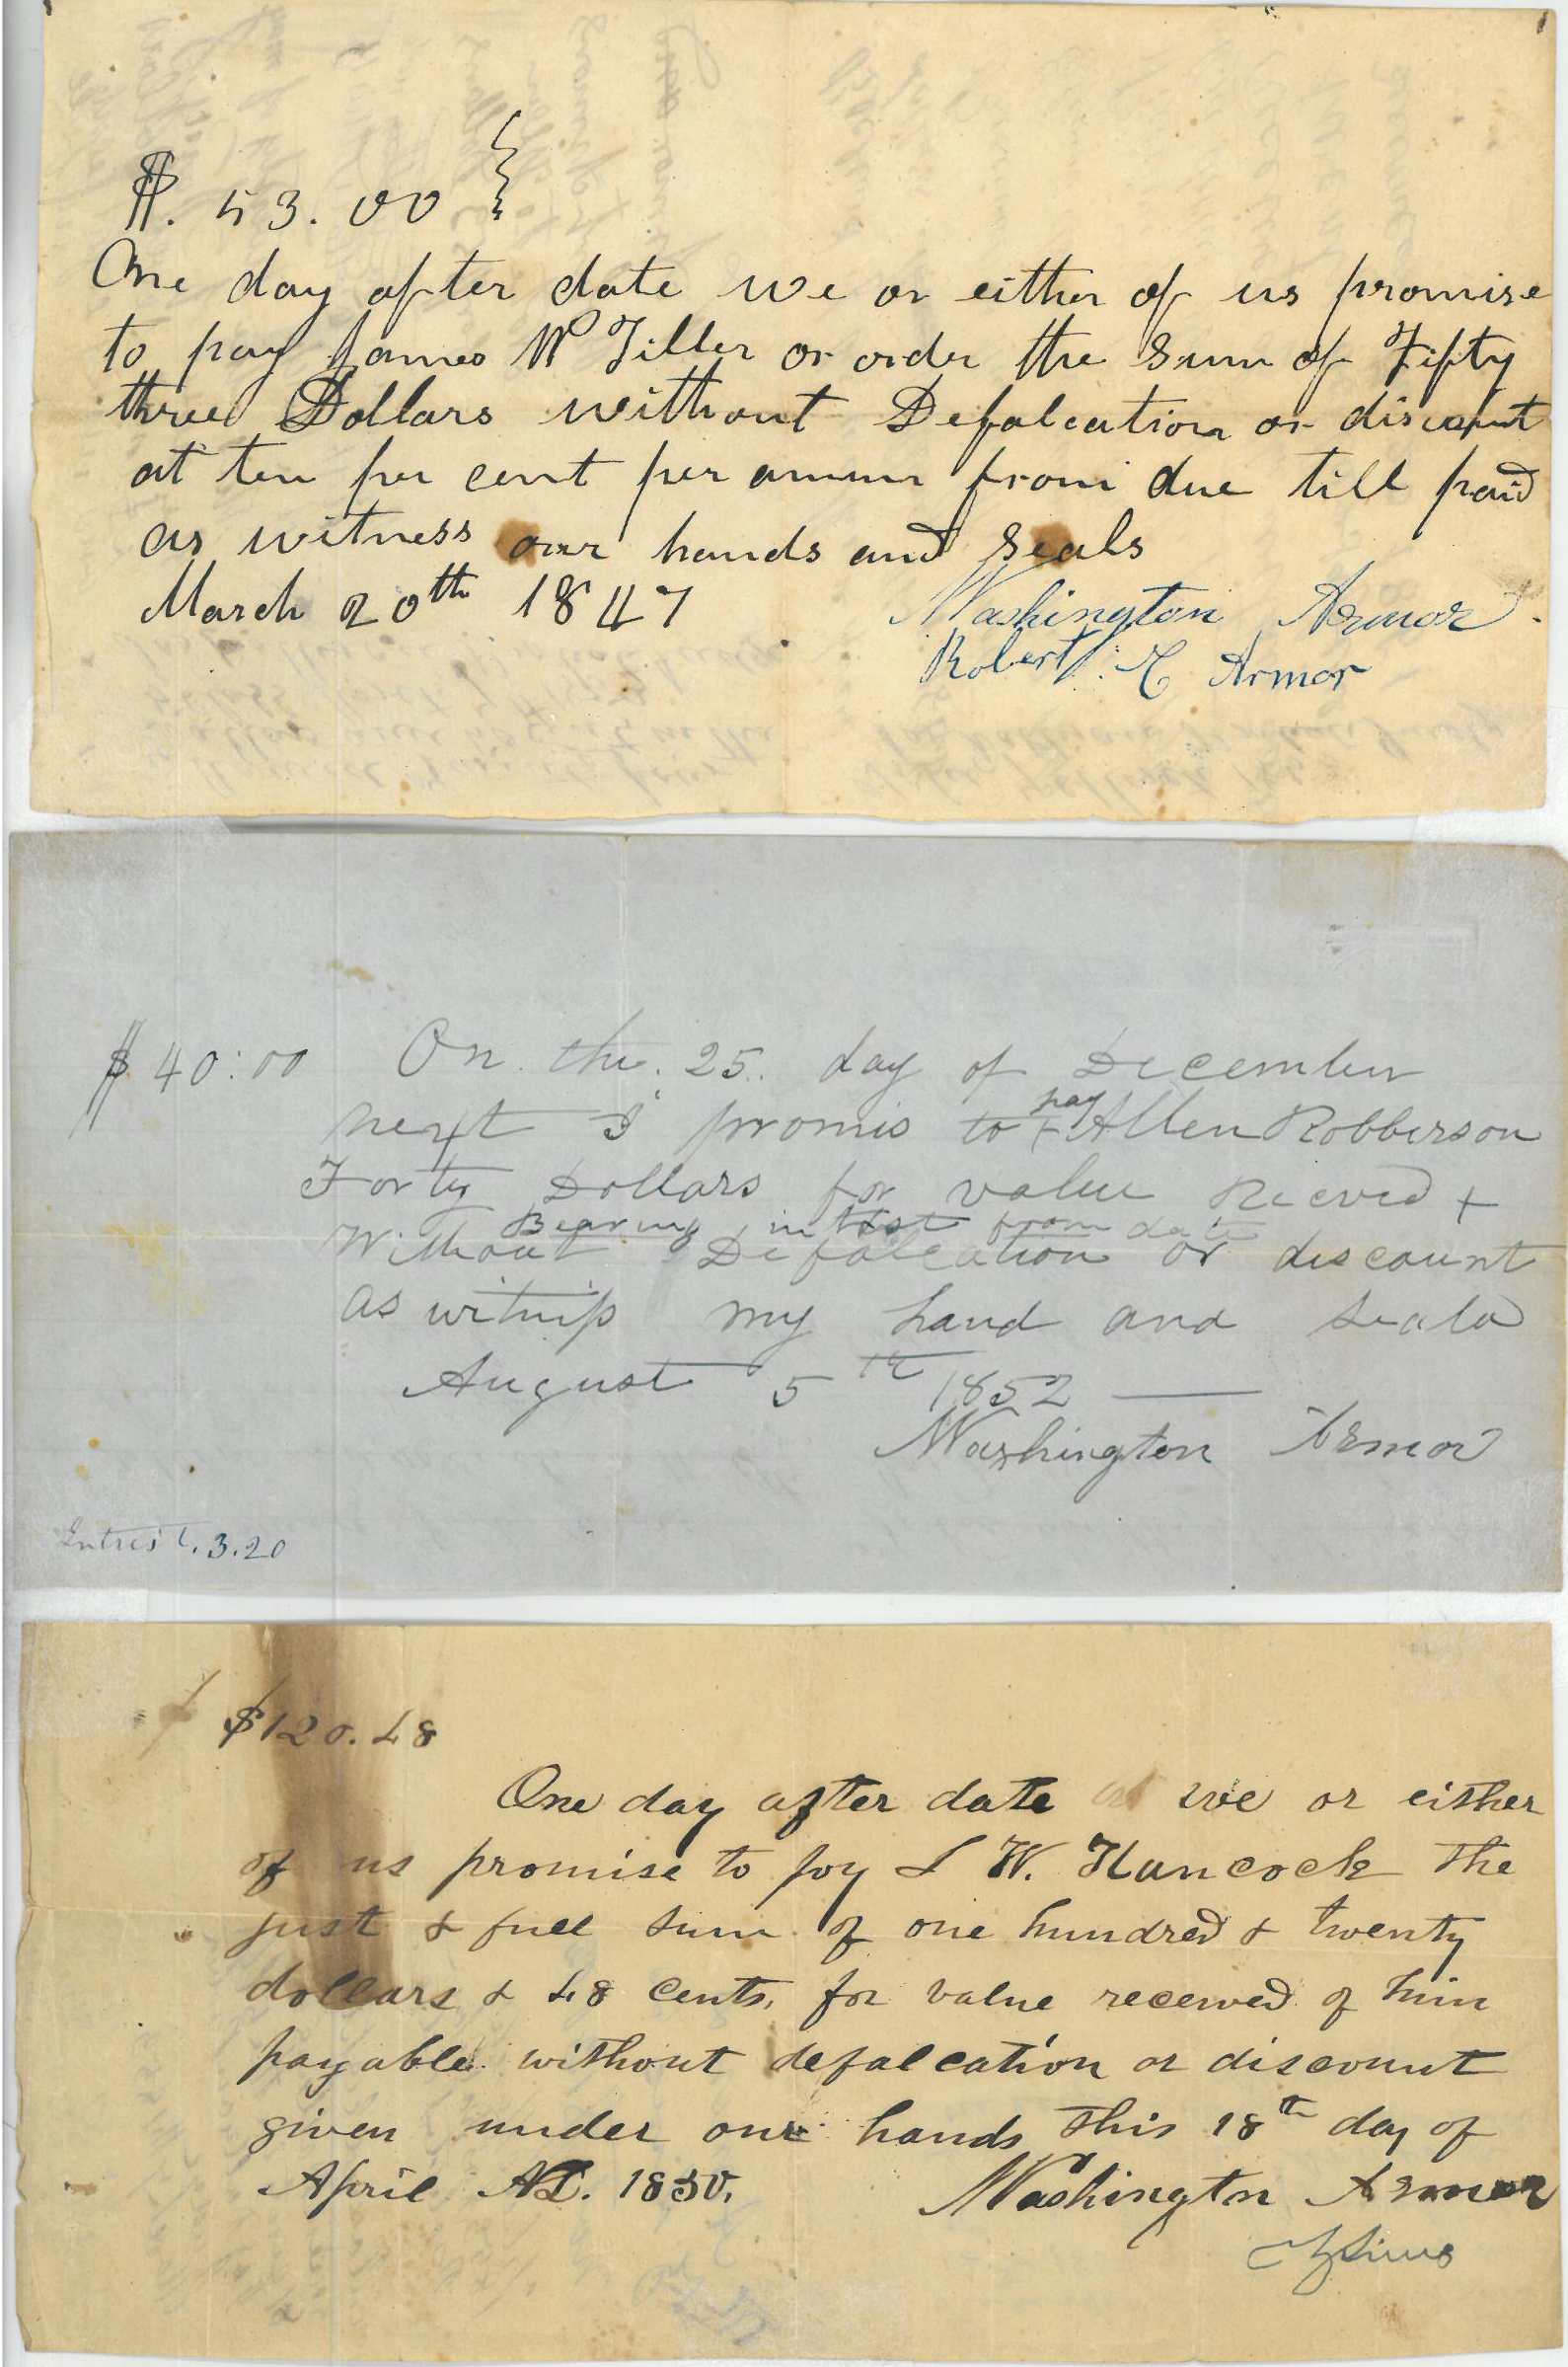 $. 53.00
One day after date we or either of us promise
to pay James W Tiller or order the Sum of Fifty
three Dollars without Defalcation or discount
at ten per cent per annum from due till paid
as witness our hands and seals
March 20th 1847
Washington Armor
Robert C Armor
$40:00 On the. 25. day of December
pay
next I promis to Allen Robberson
Forty Dollars for value Recevd +
Bearing intrst from date
Without Defalcation or discount
as witniss my hand and seala
August 5th 1852
Washington Armor
Intrest. 3.20
$120.48
One day after date we or either
of us promise to poy S W. Hancock The
just & full sum of one hundred & twenty
dollars & 48 cents, for value received of him
payable without defalcation or discount
given under our hands This 18th day of
April AD. 1850.
Washington Armor
Sims